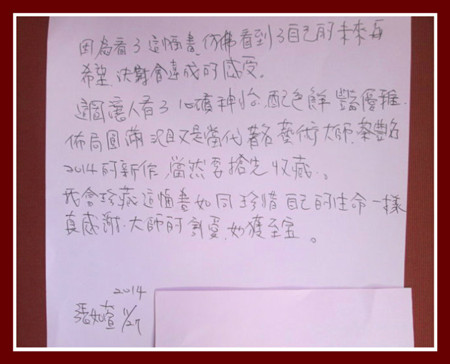 因為看了這幅畫,彷彿看到了自己的未來與
希望,決對會達成的感受。
這圖讓人看了心曠神怡,配色鮮豔優雅
佈局圓滿,況且又是當代著名藝術大師
2014的新作,當然要搶先收藏。
我會珍藏這幅畫如同珍惜自己的生命一樣
真感謝大師的割愛,如獲至宝。
2014
11/27